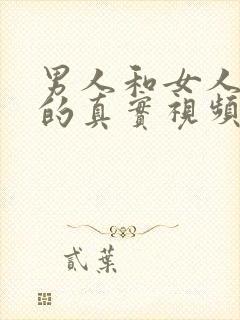 男人和女人
的真實視頻
貳葉